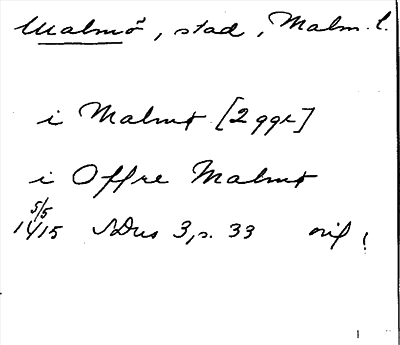 Malmö, stad, Malm. l.
i Malmø [2 ggr]
i Offre Malmø
5/5
1415 SDns 3, s. 33 orig!